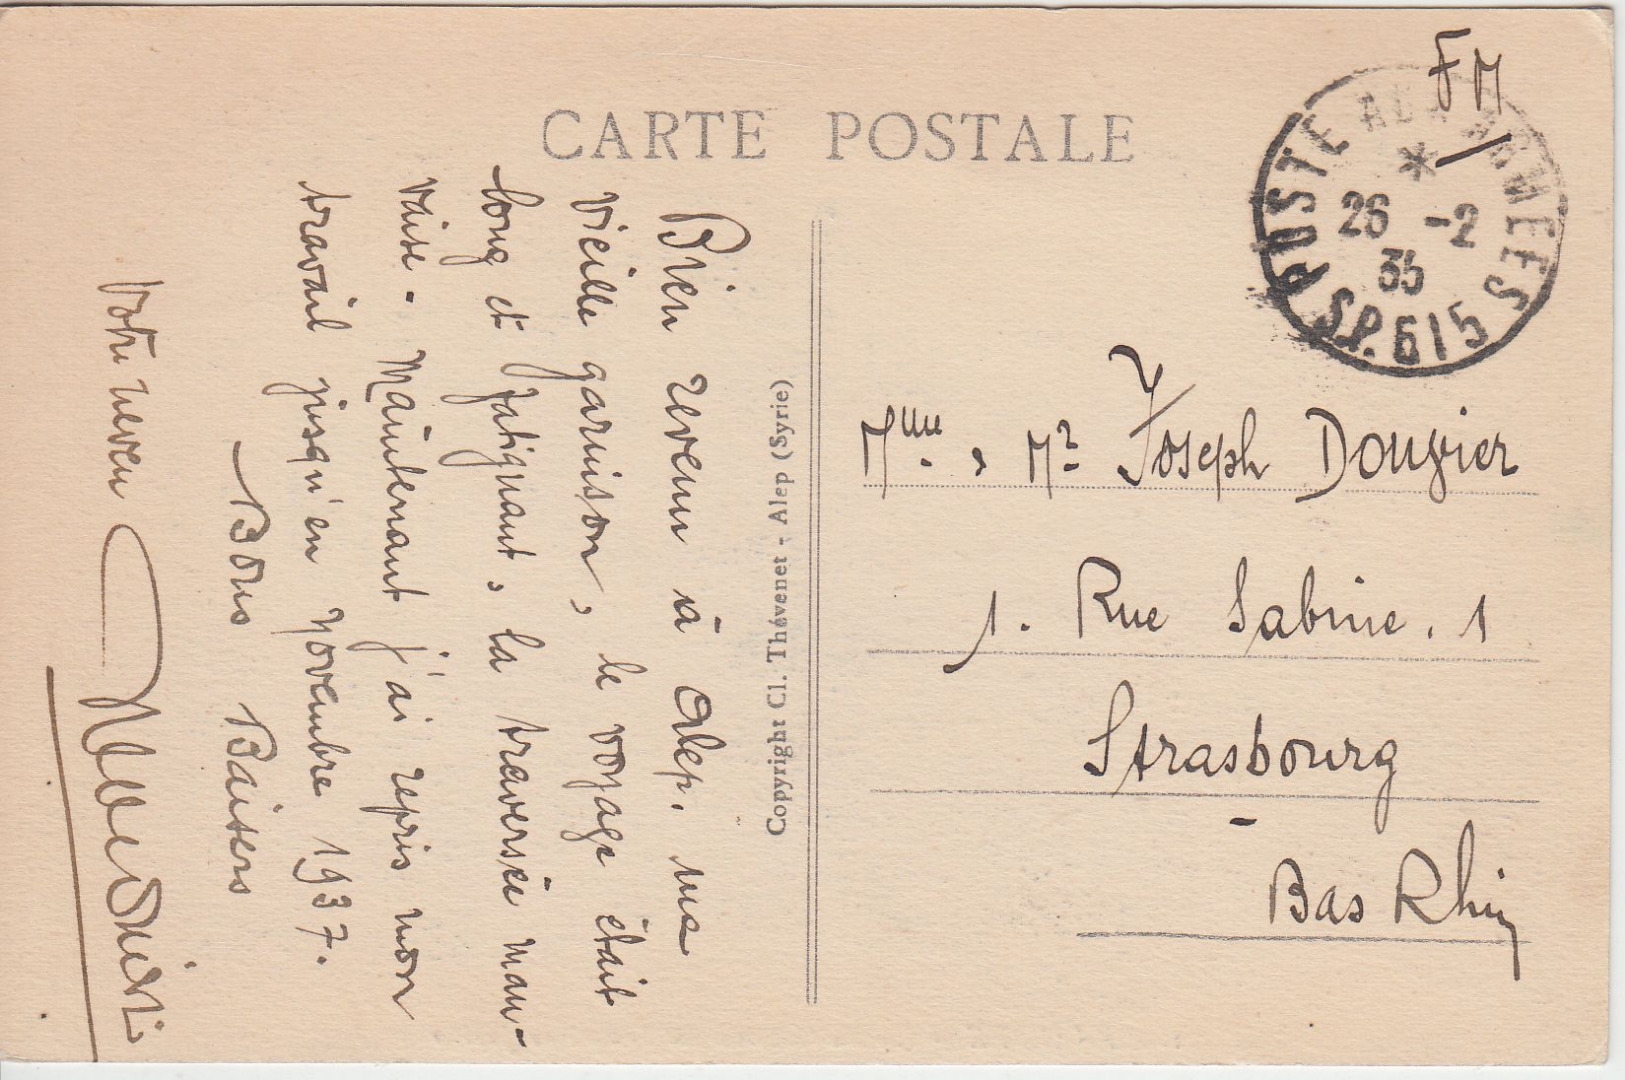 CARTE POSTALE
FM
POSTE AUX ARMEES
*
26 -2
35
S.P. 615
Bien revenu à Alep. ma
vieille garnison, le voyage était
long et fatiguant, la traversée mau-
vaise - Maintenant j'ai repris mon
travail jusqu'en Novembre 1937.
Bons Baisers
Votre neveu
Copyright Cl. Thévenet - Alep (Syrie)
Mme. & Mr. Joseph Dougier
1. Rue Sabine. 1
Strasbourg
-
Bas Rhin